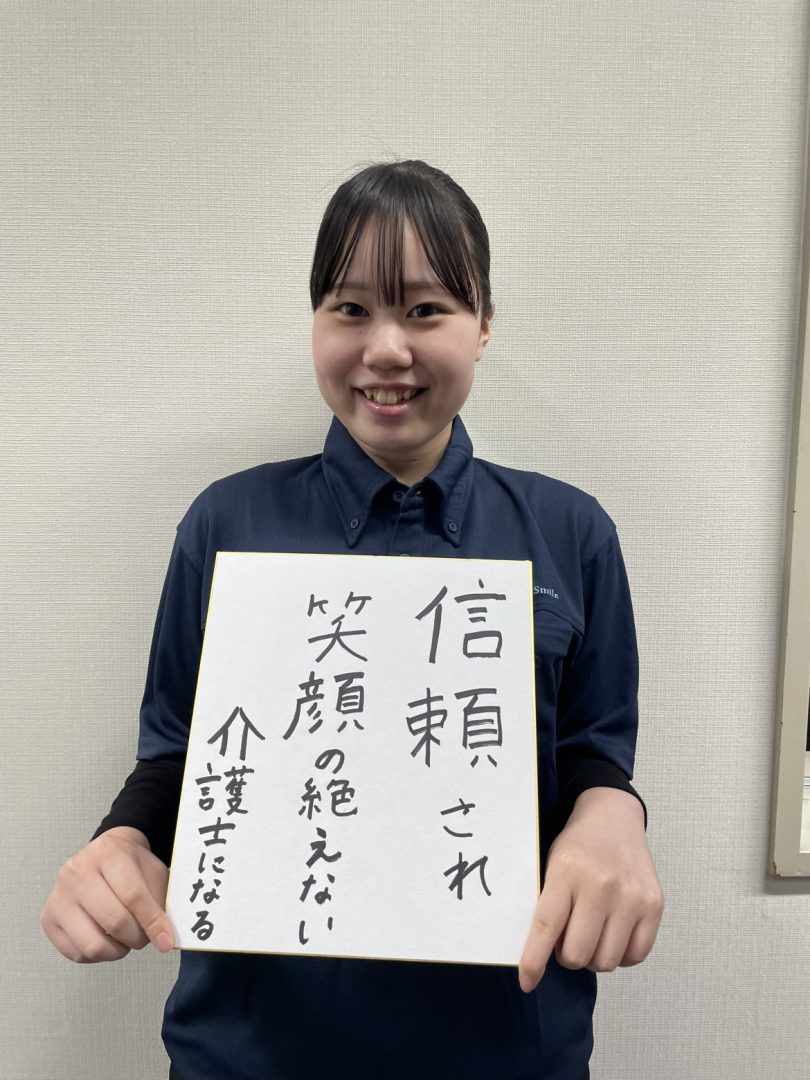 信頼され
笑顔の絶えない
介護士になる
Smile